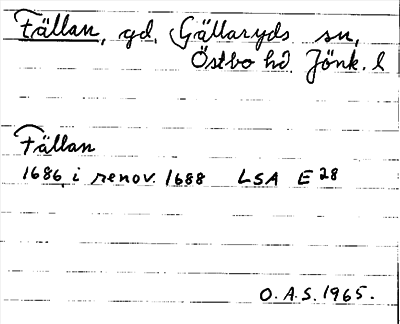 Fällan, gd, Gällaryds sn,
Östbo hd. Jönk. l
Fällan
1686 i renov. 1688 LSA E 28
O.A.S. 1965.